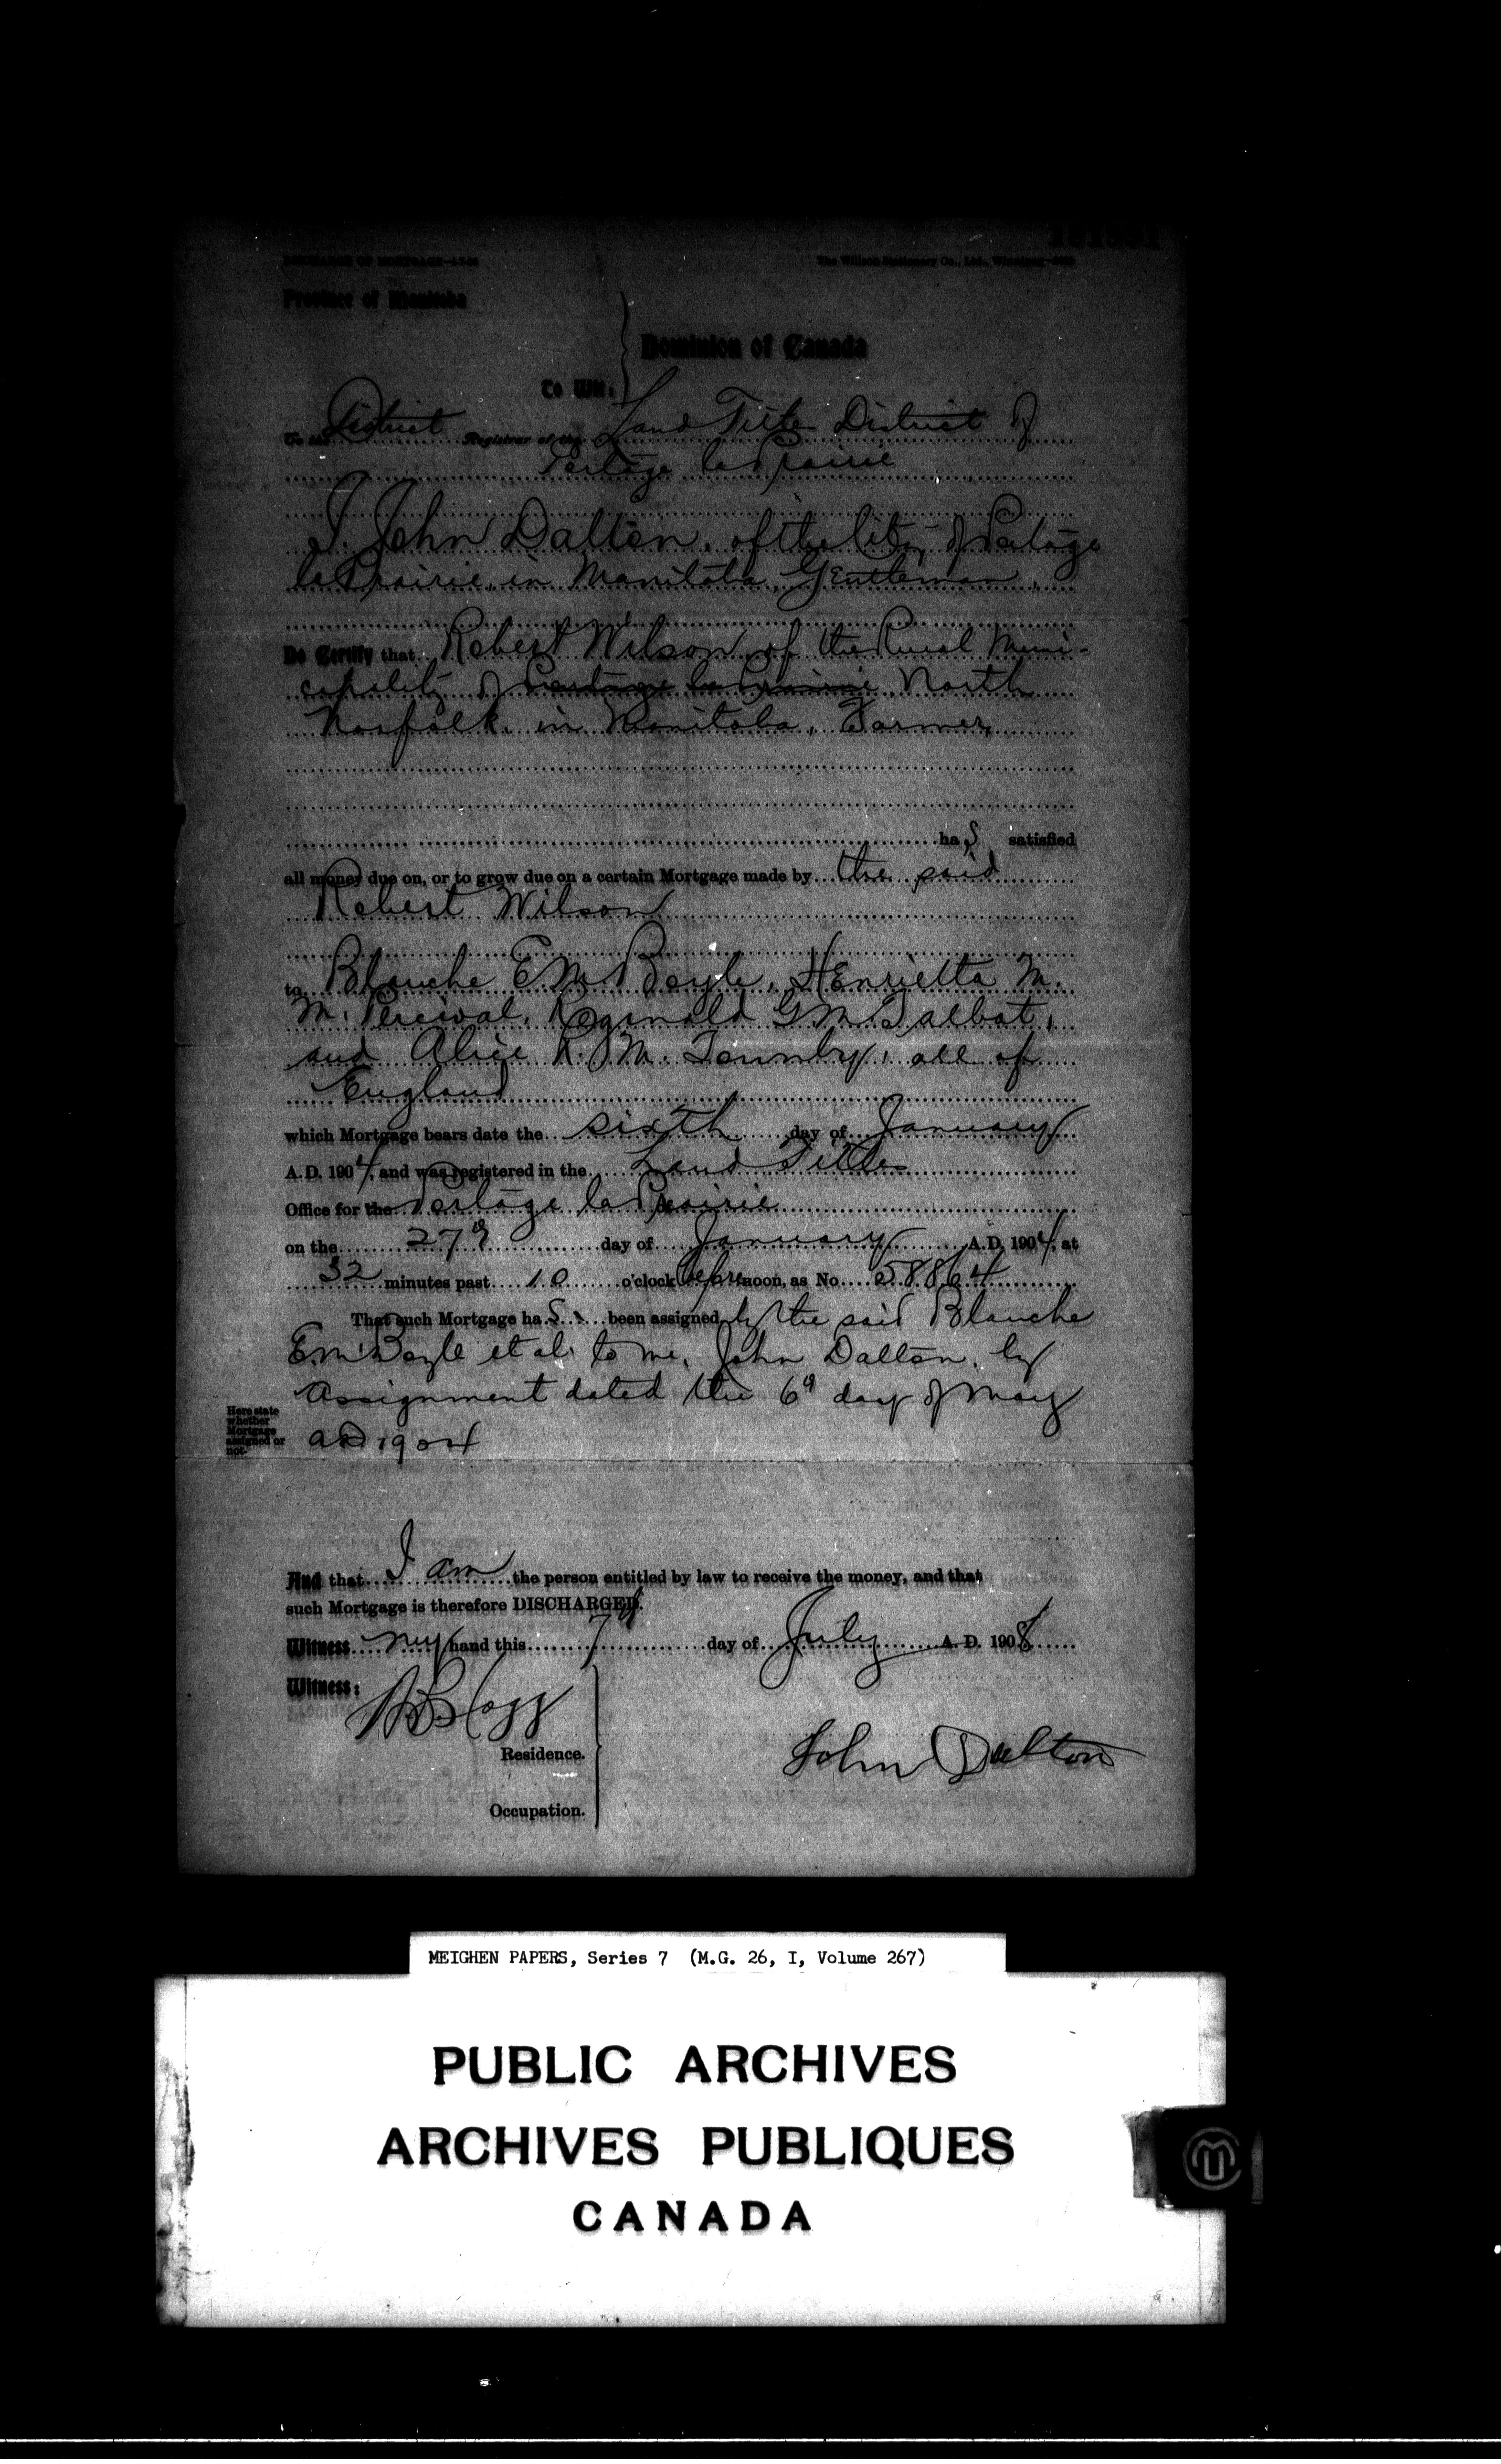 DISCHARGE OF MORTGAGE
The Willson Stationery Co., Ltd., Winnipeg
Province of Manitoba
Dominion of Canada
To Wit:
To the District Registrar of the Land Title District of
Portage la Prairie
I, John Dalton, of the City of Portage
la Prairie, in Manitoba, Gentleman,
Do Certify that Robert Wilson of the Rural Muni-
cipality of Portage la Prairie North
Norfolk in Manitoba, Farmer
has satisfied
all money due on, or to grow due on a certain Mortgage made by the said
Robert Wilson
to Blanche E M Boyle, Henrietta M.
M. Percival, Reginald G M Talbot,
and Alice R. M. all of
England
which Mortgage bears date the sixth day of January
A.D. 1904, and was registered in the Land Titles
Office for the Portage la Prairie
on the 27th day of January A.D. 1904, at
32 minutes past 10 o'clock forenoon, as No. 58864
That such Mortgage has been assigned by the said Blanche
E.M. Boyle et al. to me, John Dalton, by
Assignment dated the 6th day of May
AD 1904
Here state
whether
Mortgage
assigned or
not.
And that I am the person entitled by law to receive the money, and that
such Mortgage is therefore DISCHARGED.
Witness my hand this 7th day of July A.D. 1908
Witness:
Residence.
John Dalton
Occupation.
MEIGHEN PAPERS, Series 7 (M.G. 26, I, Volume 267)
PUBLIC ARCHIVES
ARCHIVES PUBLIQUES
CANADA